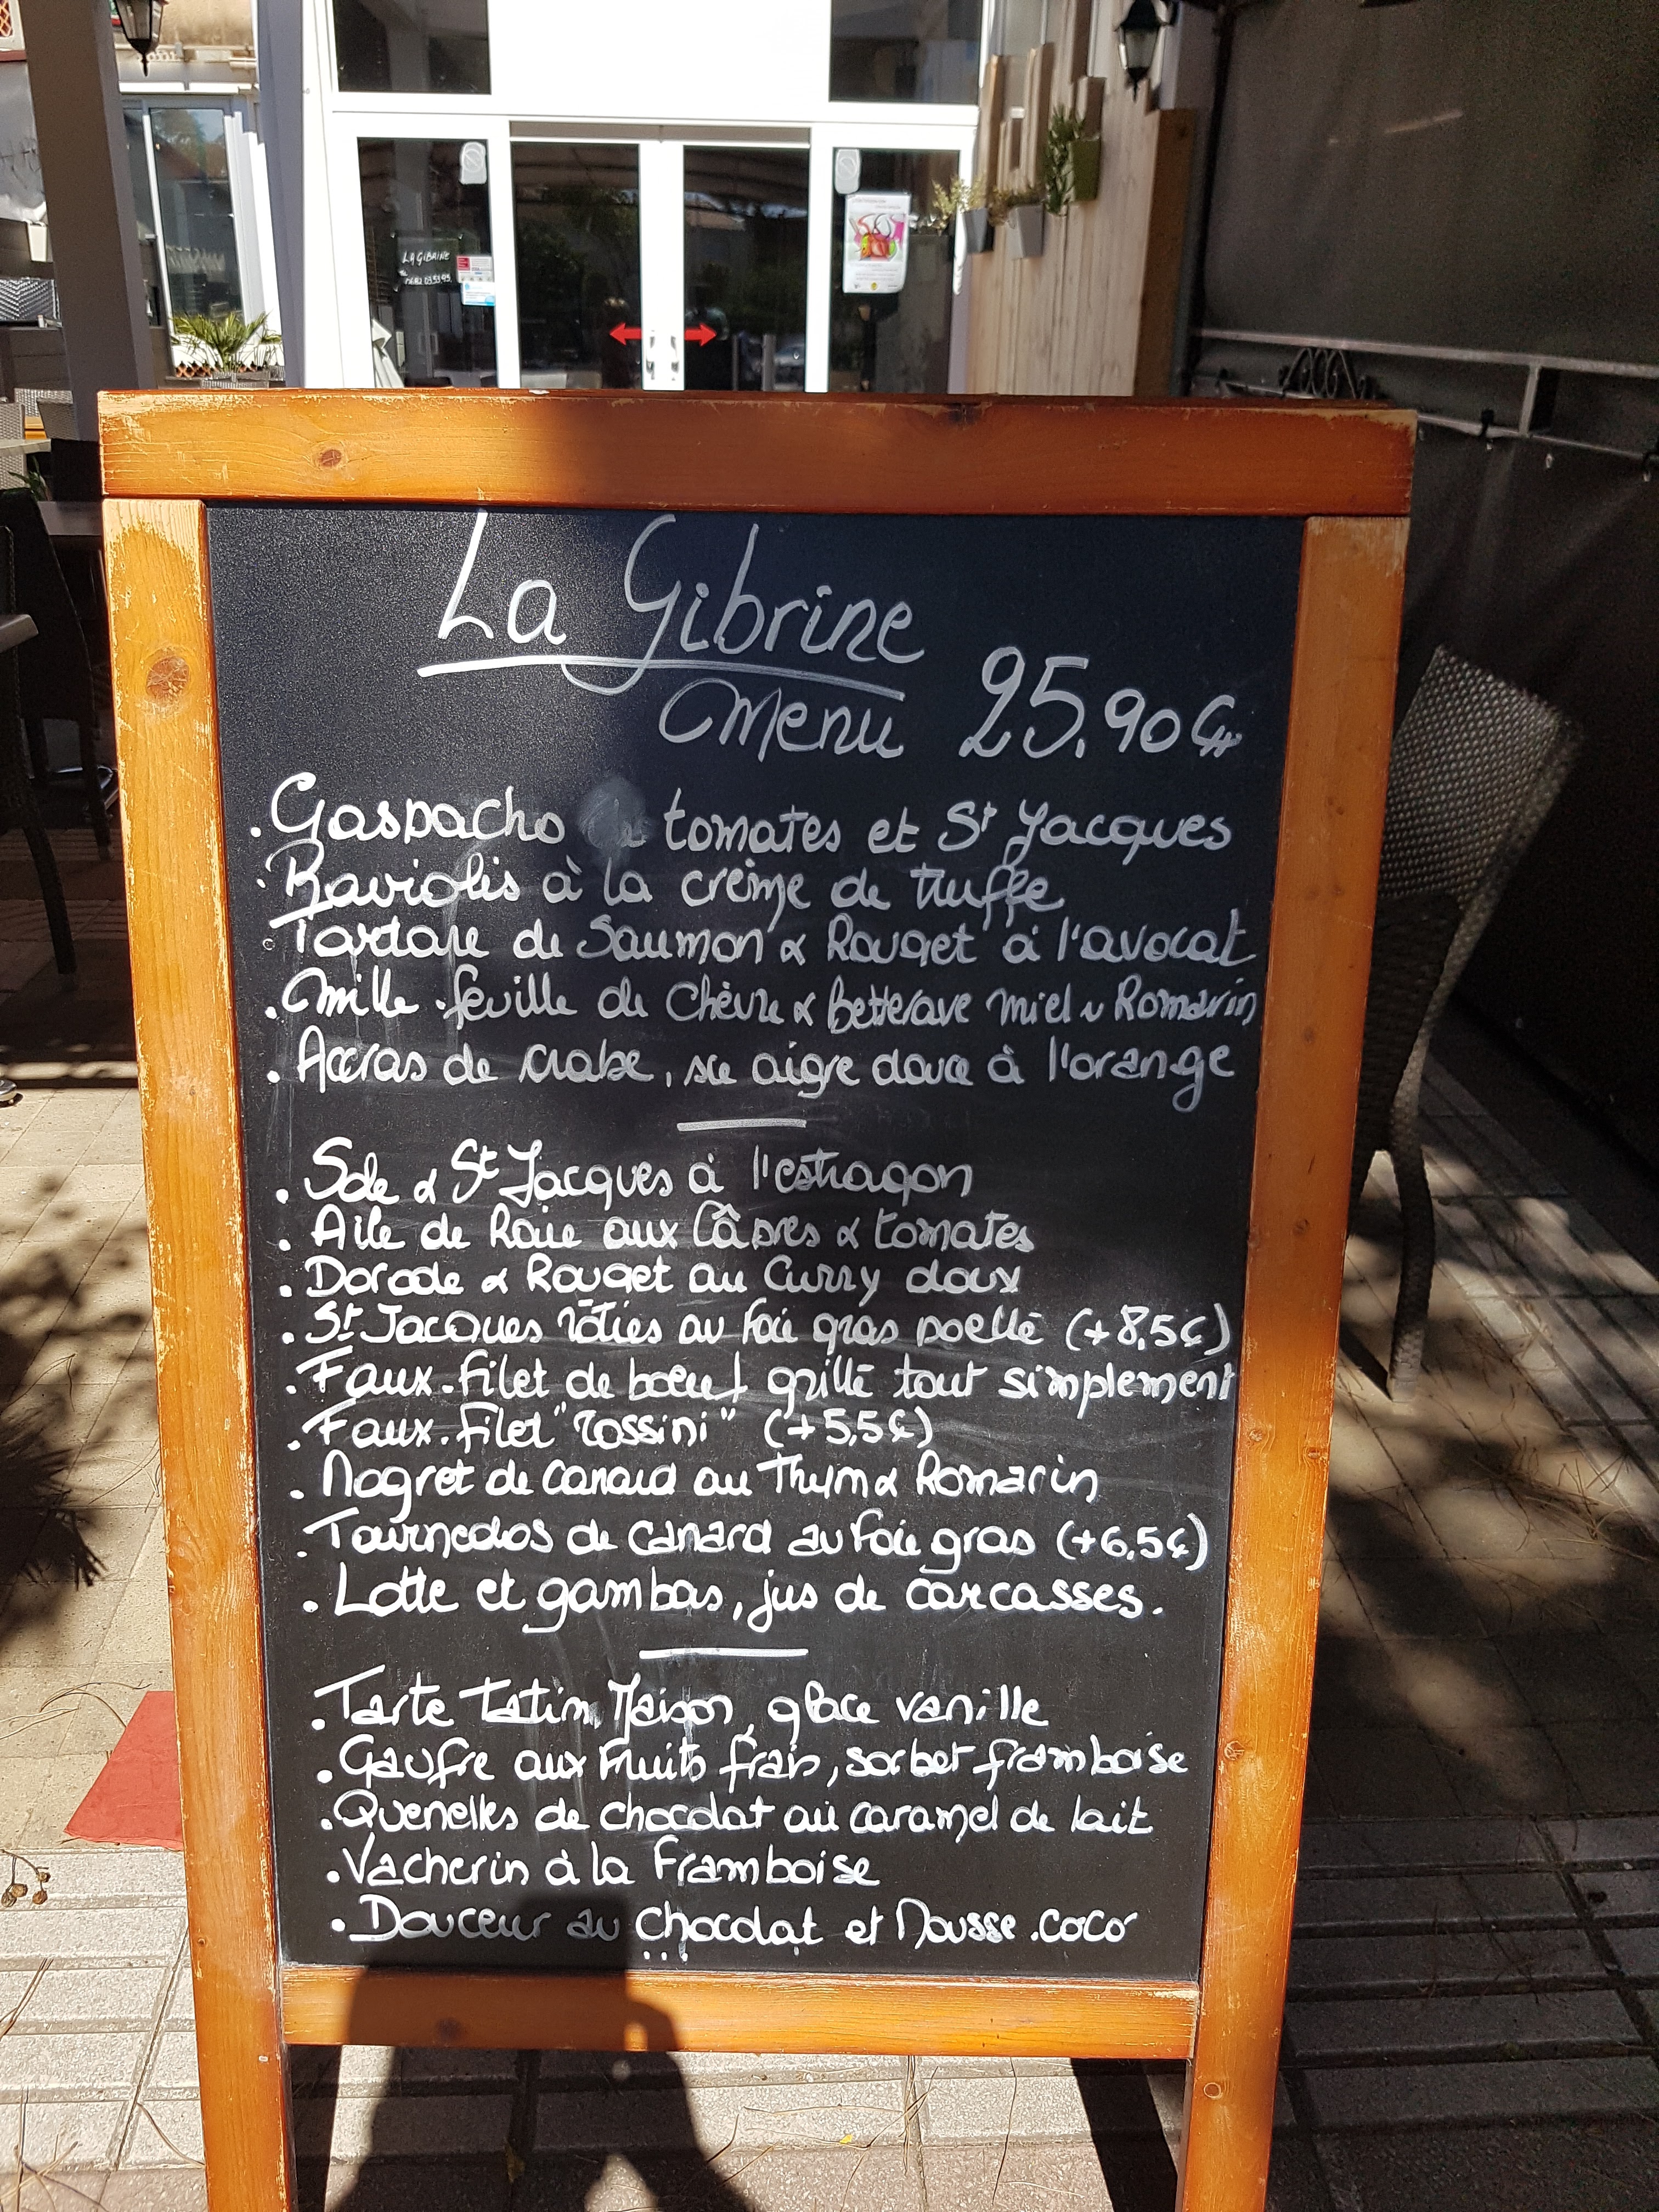 LA GIBRINE
La Gibrine
Menu 25,90€
. Gaspacho de tomates et St Jacques
. Raviolis à la crème de truffe
. Tartare de Saumon & Rouget à l'avocat
. Mille-feuille de chèvre & betterave miel & Romarin
. Accras de crabe, sce aigre douce à l'orange
. Sole & St Jacques à l'estragon
. Aile de Raie aux Câpres & tomates
. Dorade & Rouget au Curry doux
. St Jacques rôties au foie gras poellé (+8,5€)
. Faux-filet de boeuf grillé tout simplement
. Faux-filet "rossini" (+5,5€)
. Magret de canard au Thym & Romarin
. Tournedos de canard au foie gras (+6,5€)
. Lotte et gambas, jus de carcasses.
. Tarte Tatin Maison, glace vanille
. Gaufre aux fruits frais, sorbet framboise
. Quenelles de chocolat au caramel de lait
. Vacherin à la Framboise
. Douceur au chocolat et Mousse coco
...